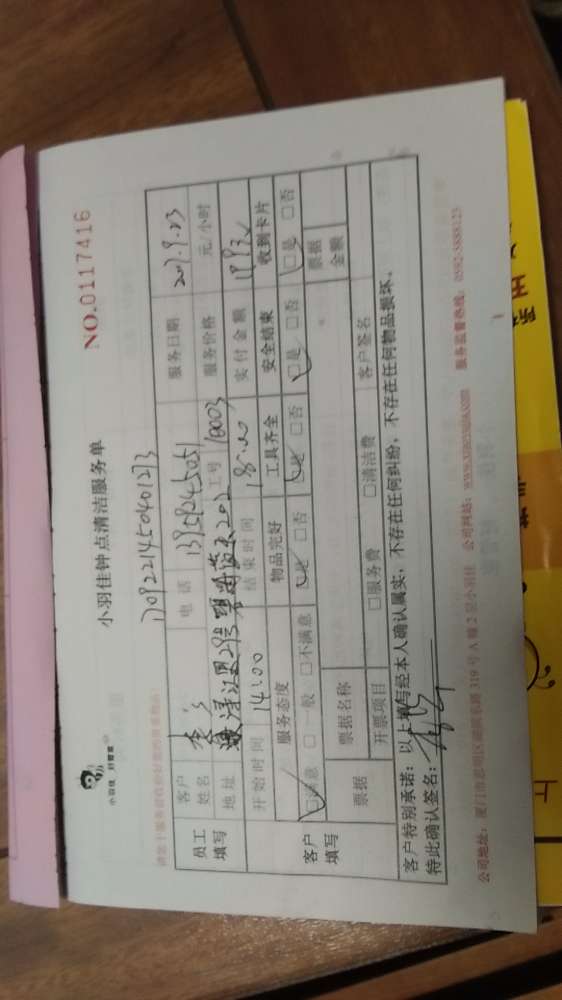 NO.0117416
小羽佳 好管家
小羽佳钟点清洁服务单
1709221450401273
员工填写
客户姓名 李 电话 13959245051 服务日期 2017.9.23
地址 工号 16003 服务价格 元/小时
开始时间 14:00 结束时间 18:00 实付金额
客户填写
服务态度 物品完好 工具齐全 安全结束 收到卡片
□满意 □一般 □不满意 □是 □否 □是 □否 □是 □否 □是 □否
票据 票据名称 票据金额
开票项目 □服务费 □清洁费 客户签名
客户特别承诺：以上填写经本人确认属实，不存在任何纠纷，不存在任何物品损坏，
特此确认签名：
公司地址：厦门市思明区湖滨东路319号A幢2层小羽佳 公司网站：www.xiaoyujia.com 服务监督热线：0592-5888123